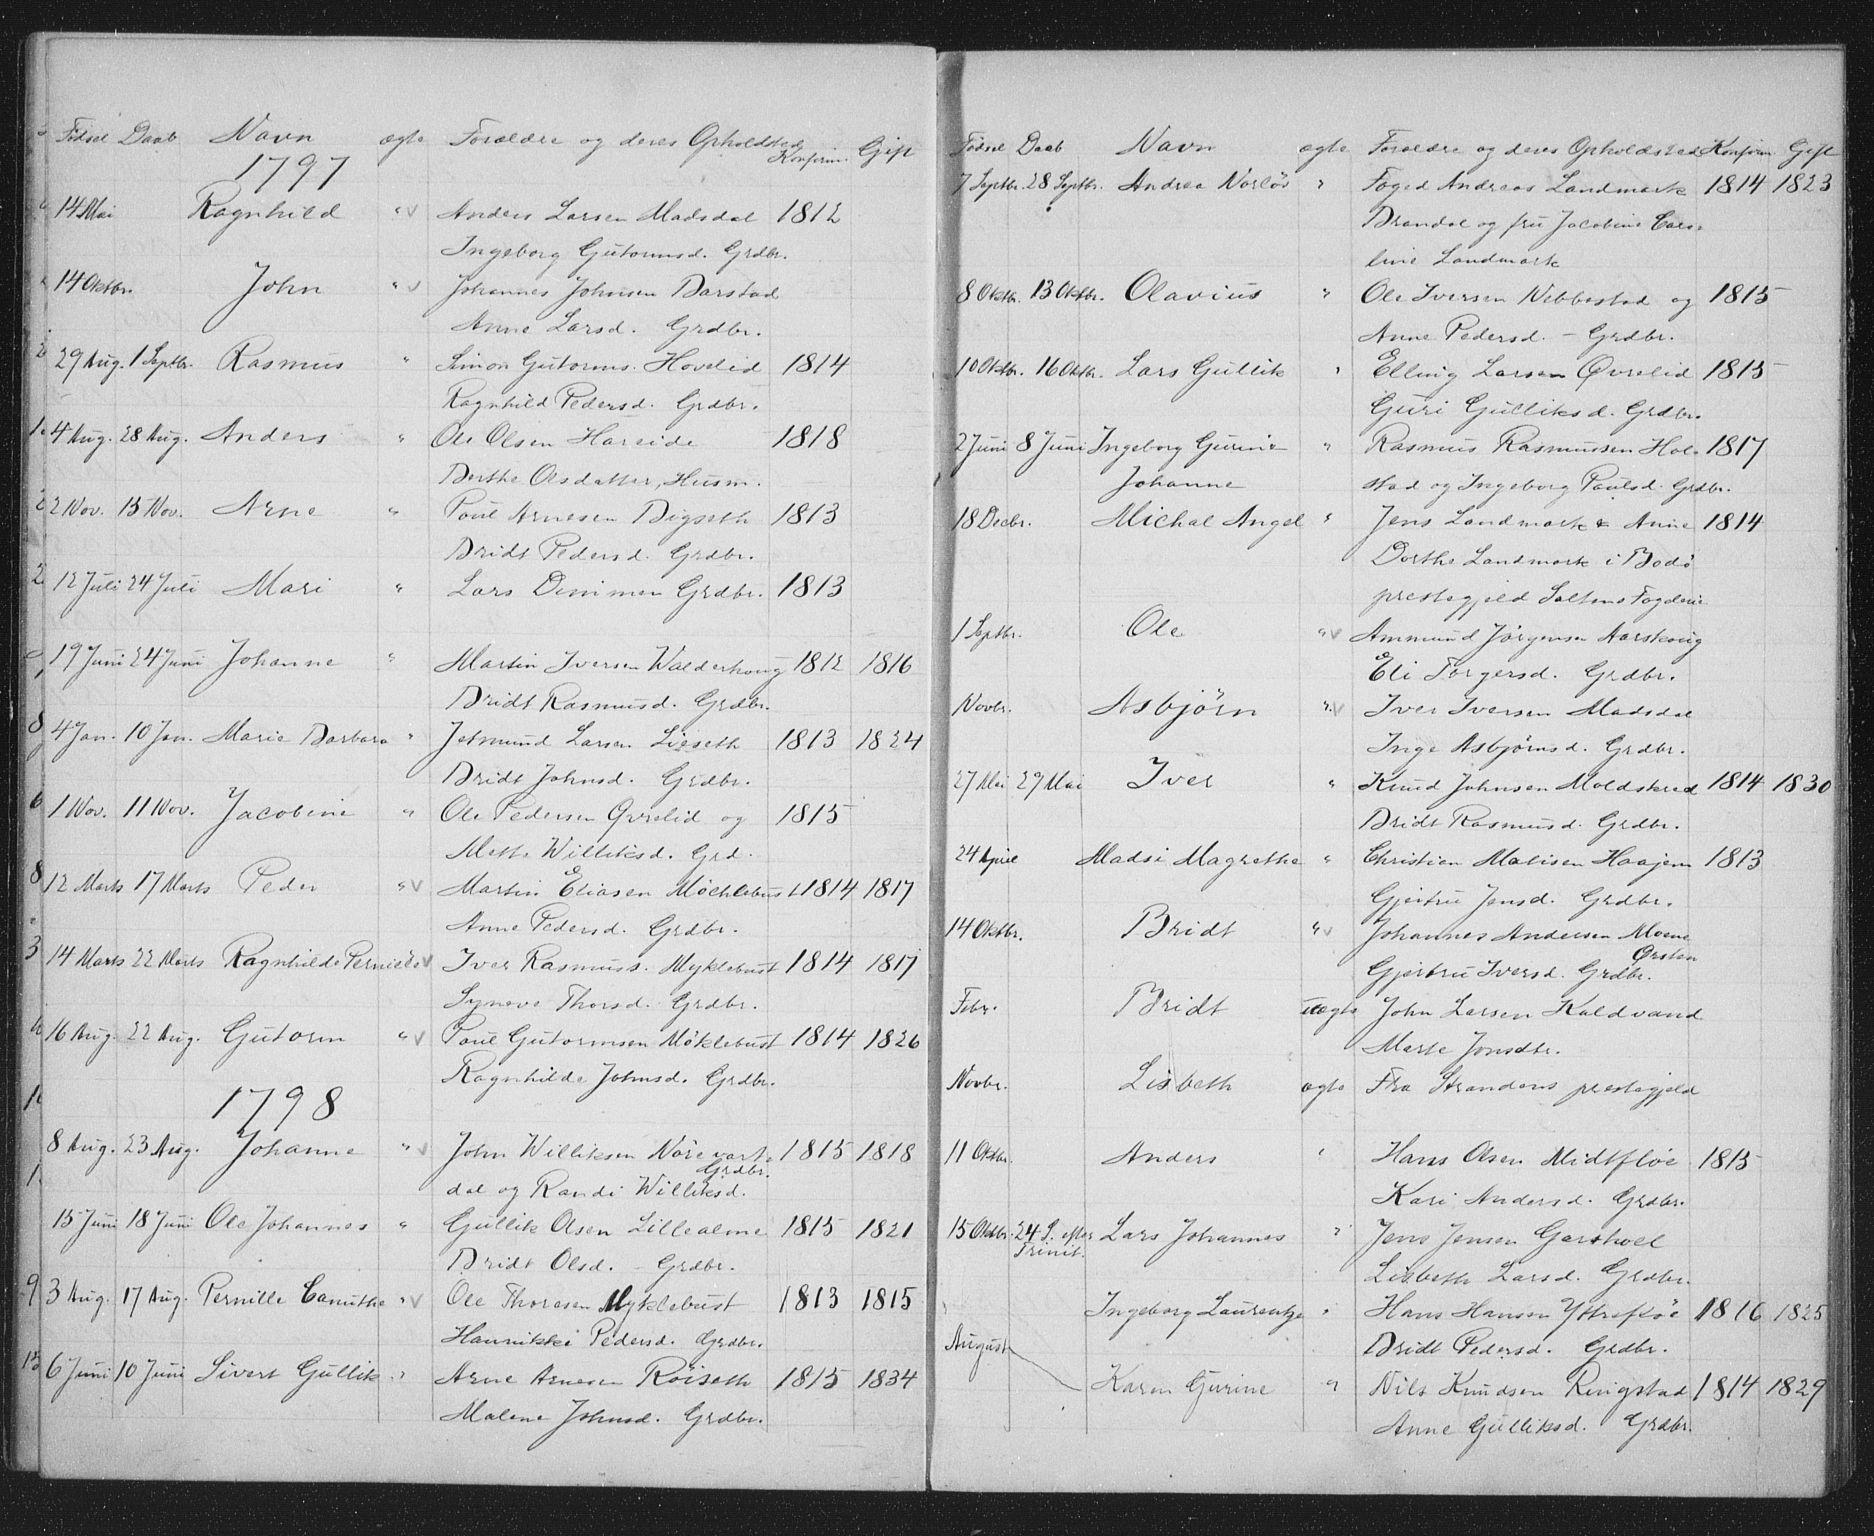 Fødsel Daab Navn ægte Forældre og deres Opholdsted Konfirm. Gift
1797
14 Mai Ragnhild " v Anders Larsen Madsdal 1812
Ingeborg Gutormsd. Grdbr.
14 Oktbr. John " v Johannes Johnsen Barstad
Anne Larsd. Grdbr.
29 Aug. 1 Septbr. Rasmus " Simon Gutorms. Hovelid 1814
Ragnhild Pedersd. Grdbr.
4 Aug. 28 Aug. Anders " Ole Olsen Hareide 1818
Berthe Olsdatter, Husm.
2 Nov. 15 Nov. Arne " Poul Arnesen Digseth 1813
Bridt Pedersd. Grdbr.
12 Juli 24 Juli Mari " Lars Dimmen Grdbr. 1813
19 Juni 24 Juni Johanne " Martin Iversen Walderhoug 1812 1816
Bridt Rasmusd. Grdbr.
4 Jan. 10 Jan. Marie Barbara " Jetmund Larsen Liеseth 1813 1824
Bridt Johnsd. Grdbr.
1 Nov. 11 Nov. Jacobine " Ole Pedersen Øvrelid og 1815
Mette Williksd. Grd.
12 Marts 17 Marts Peder " v Martin Eliasen Möchlebust 1814 1817
Anne Pedersd. Grdbr.
14 Marts 22 Marts Ragnhilde Pernille " v Iver Rasmuss. Myklebust 1814 1817
Syneve Thorsd. Grdbr.
16 Aug. 22 Aug. Gutorm " v Poul Gutormsen Möklebust 1814 1826
Ragnhilde Johnsd. Grdbr.
1798
8 Aug. 23 Aug. Johanne " v John Williksen Nörevart- 1815 1818
Grdbr.
dal og Randi Williksd.
15 Juni 18 Juni Ole Johannes " Gullik Olsen Lillealme 1815 1821
Bridt Olsd. - Grdbr.
3 Aug. 17 Aug. Pernille Canuthe " v Ole Thoresen Myklebust 1813 1815
Hannikki Pedersd. Grdbr.
6 Juni 10 Juni Sivert Gullik " Arne Arnesen Röiseth 1815 1834
Malene Johnsd. Grdbr.
Fødsel Daab Navn ægte Forældre og deres Opholdsted Konfirm Gift
7 Septbr. 28 Septbr. Andrea Norløv " Foged Andreas Landmark 1814 1823
Brandal og fru Jacobine Caro-
line Landmark
8 Oktbr. 13 Oktbr. Olavius " Ole Iversen Nebbestad og 1815
Anne Pedersd. - Grdbr.
10 Oktbr. 16 Oktbr. Lars Gullik " Elling Larsen Øvrelid 1815
Guri Gulliksd. Grdbr.
2 Juni 8 Juni Ingeborg Gurine " Rasmus Rasmussen Hol- 1817
Johanne stad og Ingeborg Poulsd. Grdbr.
18 Decbr. Michal Angel " Jens Landmark & Anne 1814
Dorthe Landmark i Bodö
prestegjeld Saltens Fogderie
1 Septbr. Ole " v Ammund Jörgensen Aarskoug
Eli Torgersd. Grdbr.
Novbr. Asbjörn " v Iver Iversen Madsdal
Inge Asbjörnsd. Grdbr.
27 Mai 29 Mai Iver " Knud Johnsen Moldskred 1814 1830
Bridt Rasmusd. Grdbr.
24 April Madsi Magrethe " Christien Matisen Haajem 1813
Gjertru Jensd. Grdbr.
14 Oktbr. Bridt " v Johannes Andersen Moene
Örsten
Gjertru Iversd. Grdbr.
Febr. Bridt uægte John Larsen Kaldvand
Marte Jonsdtr.
Novbr. Lisbeth ægte Fra Strandens prestegjeld
11 Oktbr. Anders " Hans Olsen Midtflöe 1815
Kari Andersd. Grdbr.
15 Oktbr. 24 S. efter Lars Johannes " Jens Jensen Garshoel
Trinit.
Lisbeth Larsd. Grdbr.
Ingeborg Laurentze " Hans Hansen Ytreflöe 1816 1825
August Bridt Pedersd. Grdbr.
Karen Gurine " Nils Knudsen Ringstad 1814 1829
Anne Gulliksd. Grdbr.